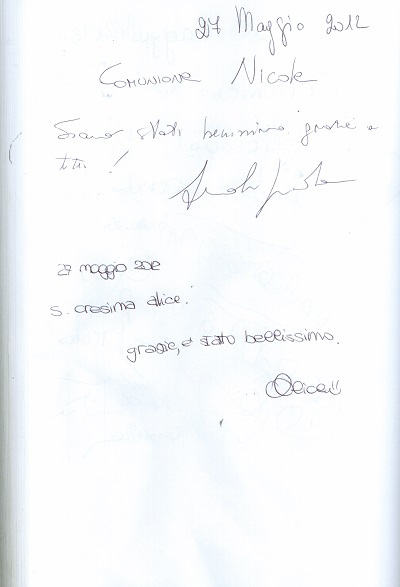 27 Maggio 2012
COMUNIONE Nicole
Siamo stati benissimo, grazie a
tutti!
27 maggio 2012
S. cresima alice.
grazie, è stato bellissimo.
Alice!!